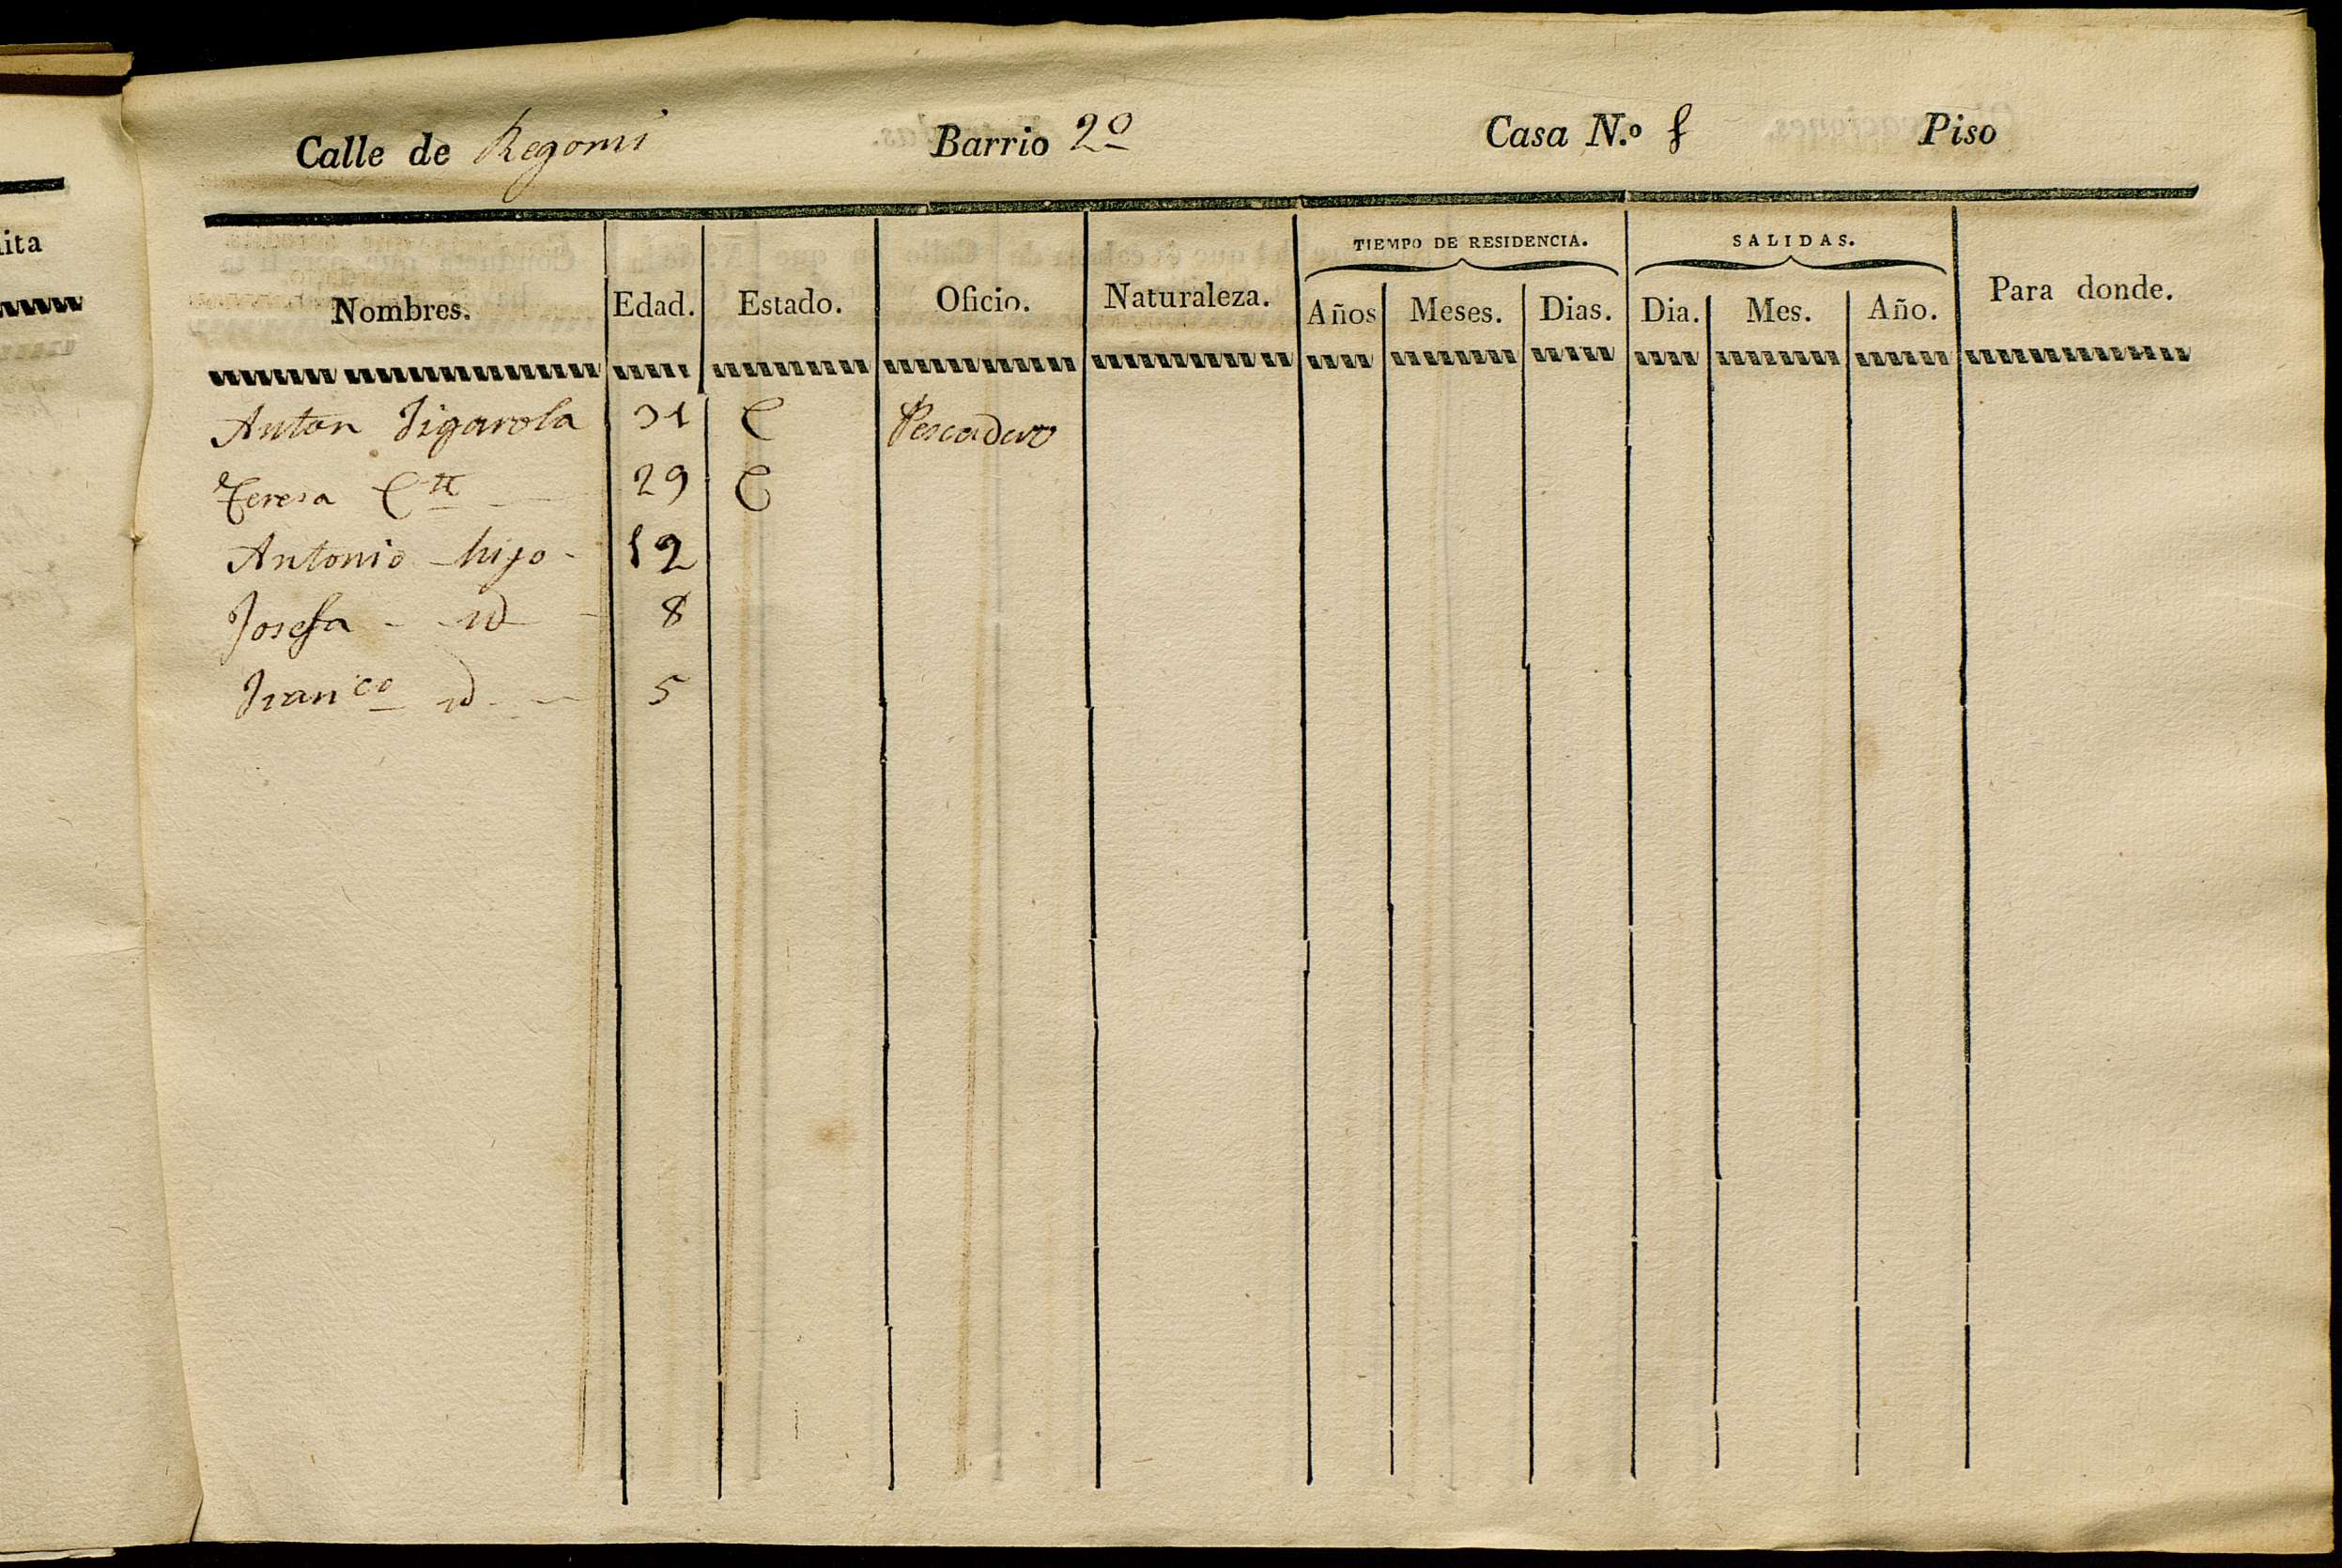 ita
Calle de Regomi Barrio 2º Casa N.º Piso
TIEMPO DE RESIDENCIA. SALIDAS.
Nombres. Edad. Estado. Oficio. Naturaleza. Años Meses. Dias. Dia. Mes. Año. Para donde.
Anton Figarola 31 C Pescador
Teresa C 29 C
Antonio hijo - 12
Josefa - - id - 8
Franco id - - 5